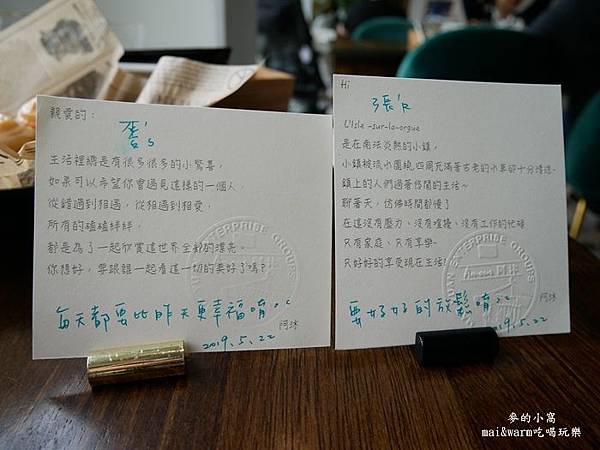 親愛的：
蛋's
生活裡總是有很多很多的小驚喜，
如果可以希望你會遇見這樣的一個人，
從錯過到相遇，從相遇到相愛，
所有的磕磕絆絆，
都是為了一起欣賞這世界全部的漂亮。
你想好，要跟誰一起看這一切的美好了嗎？
每天都要比昨天更幸福唷
阿沐
2019.5.22
Hi
張'R
L'Isle-sur-la-orgue
是在南法炎熱的小鎮，
小鎮被流水圍繞，四周充滿著古老的水車卻十分清透。
鎮上的人們過著悠閒的生活~
聊著天，彷彿時間都慢了
在這沒有壓力、沒有喧擾、沒有工作的忙碌
只有家庭、只有享樂。
只好好的享受現在生活！
要好好的放鬆唷
阿沐
2019.5.22
ENTERPRISE GROUPS
麥的小窩
mai&warm吃喝玩樂